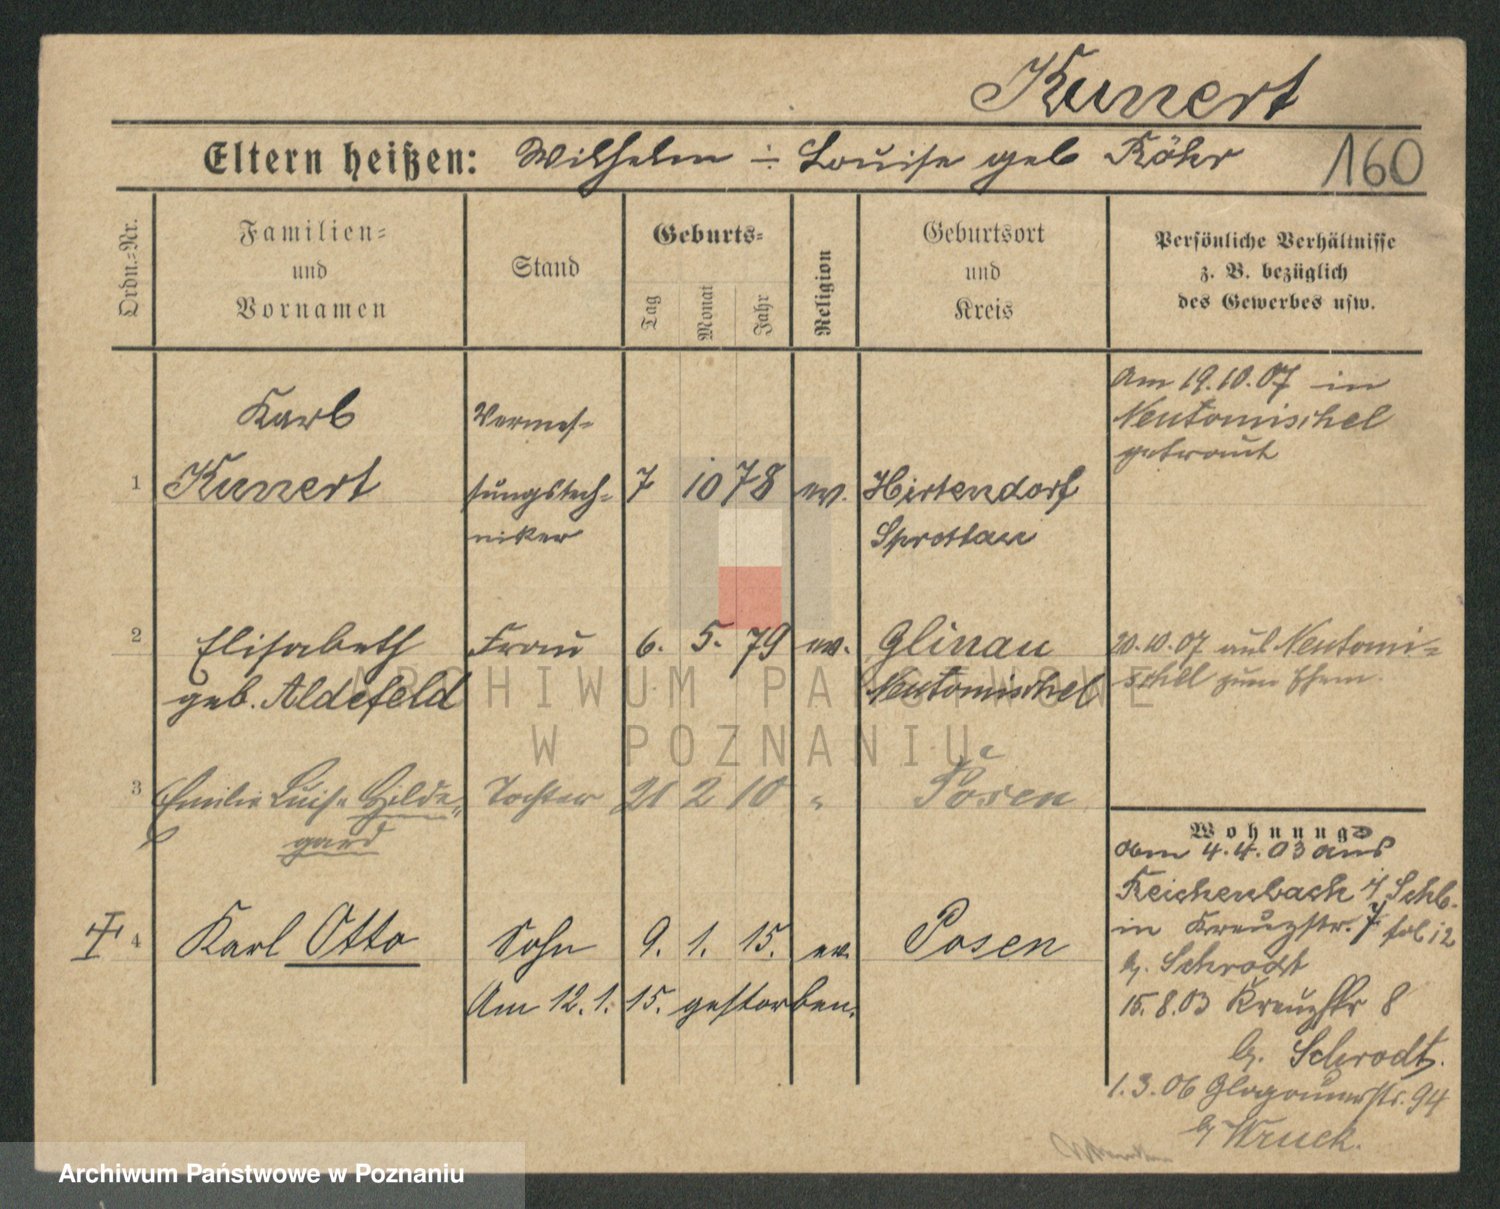 Kunert
Eltern heißen: Wilhelm ÷ Louise geb Röhr 160
Ordn.-Nr.
Familien-
und
Vornamen
Stand
Geburts-
Tag
Monat
Jahr
Religion
Geburtsort
und
Kreis
Persönliche Verhältnisse
z. B. bezüglich
des Gewerbes usw.
1
Karl
Kunert
Vermes-
sungstech-
niker
7 10 78 ev.
Hirtendorf
Sprottau
Am 19.10.07 in
Neutomischel
getraut
2
Elisabeth
geb. Aldefeld
Frau 6. 5. 79 ev.
Glinau
Neutomischel
20.10.07 aus Neutomi-
schel zum Ehem.
3
Emilie Luise Hilde-
gard
Tochter 21 2 10 "
Posen
4
Karl Otto Sohn 9. 1. 15. ev. Posen
Am 12.1.15. gestorben.
Wohnung
am 4.4.03 aus
Reichenbach i/Schl.
in Kreuzstr. 7 fol 12
b. Schrodt
15.8.03 Kreuzstr 8
b. Schrodt.
1.3.06 Glogauerstr. 94
b Wruck.
ARCHIWUM PAŃSTWOWE
W POZNANIU
Archiwum Państwowe w Poznaniu